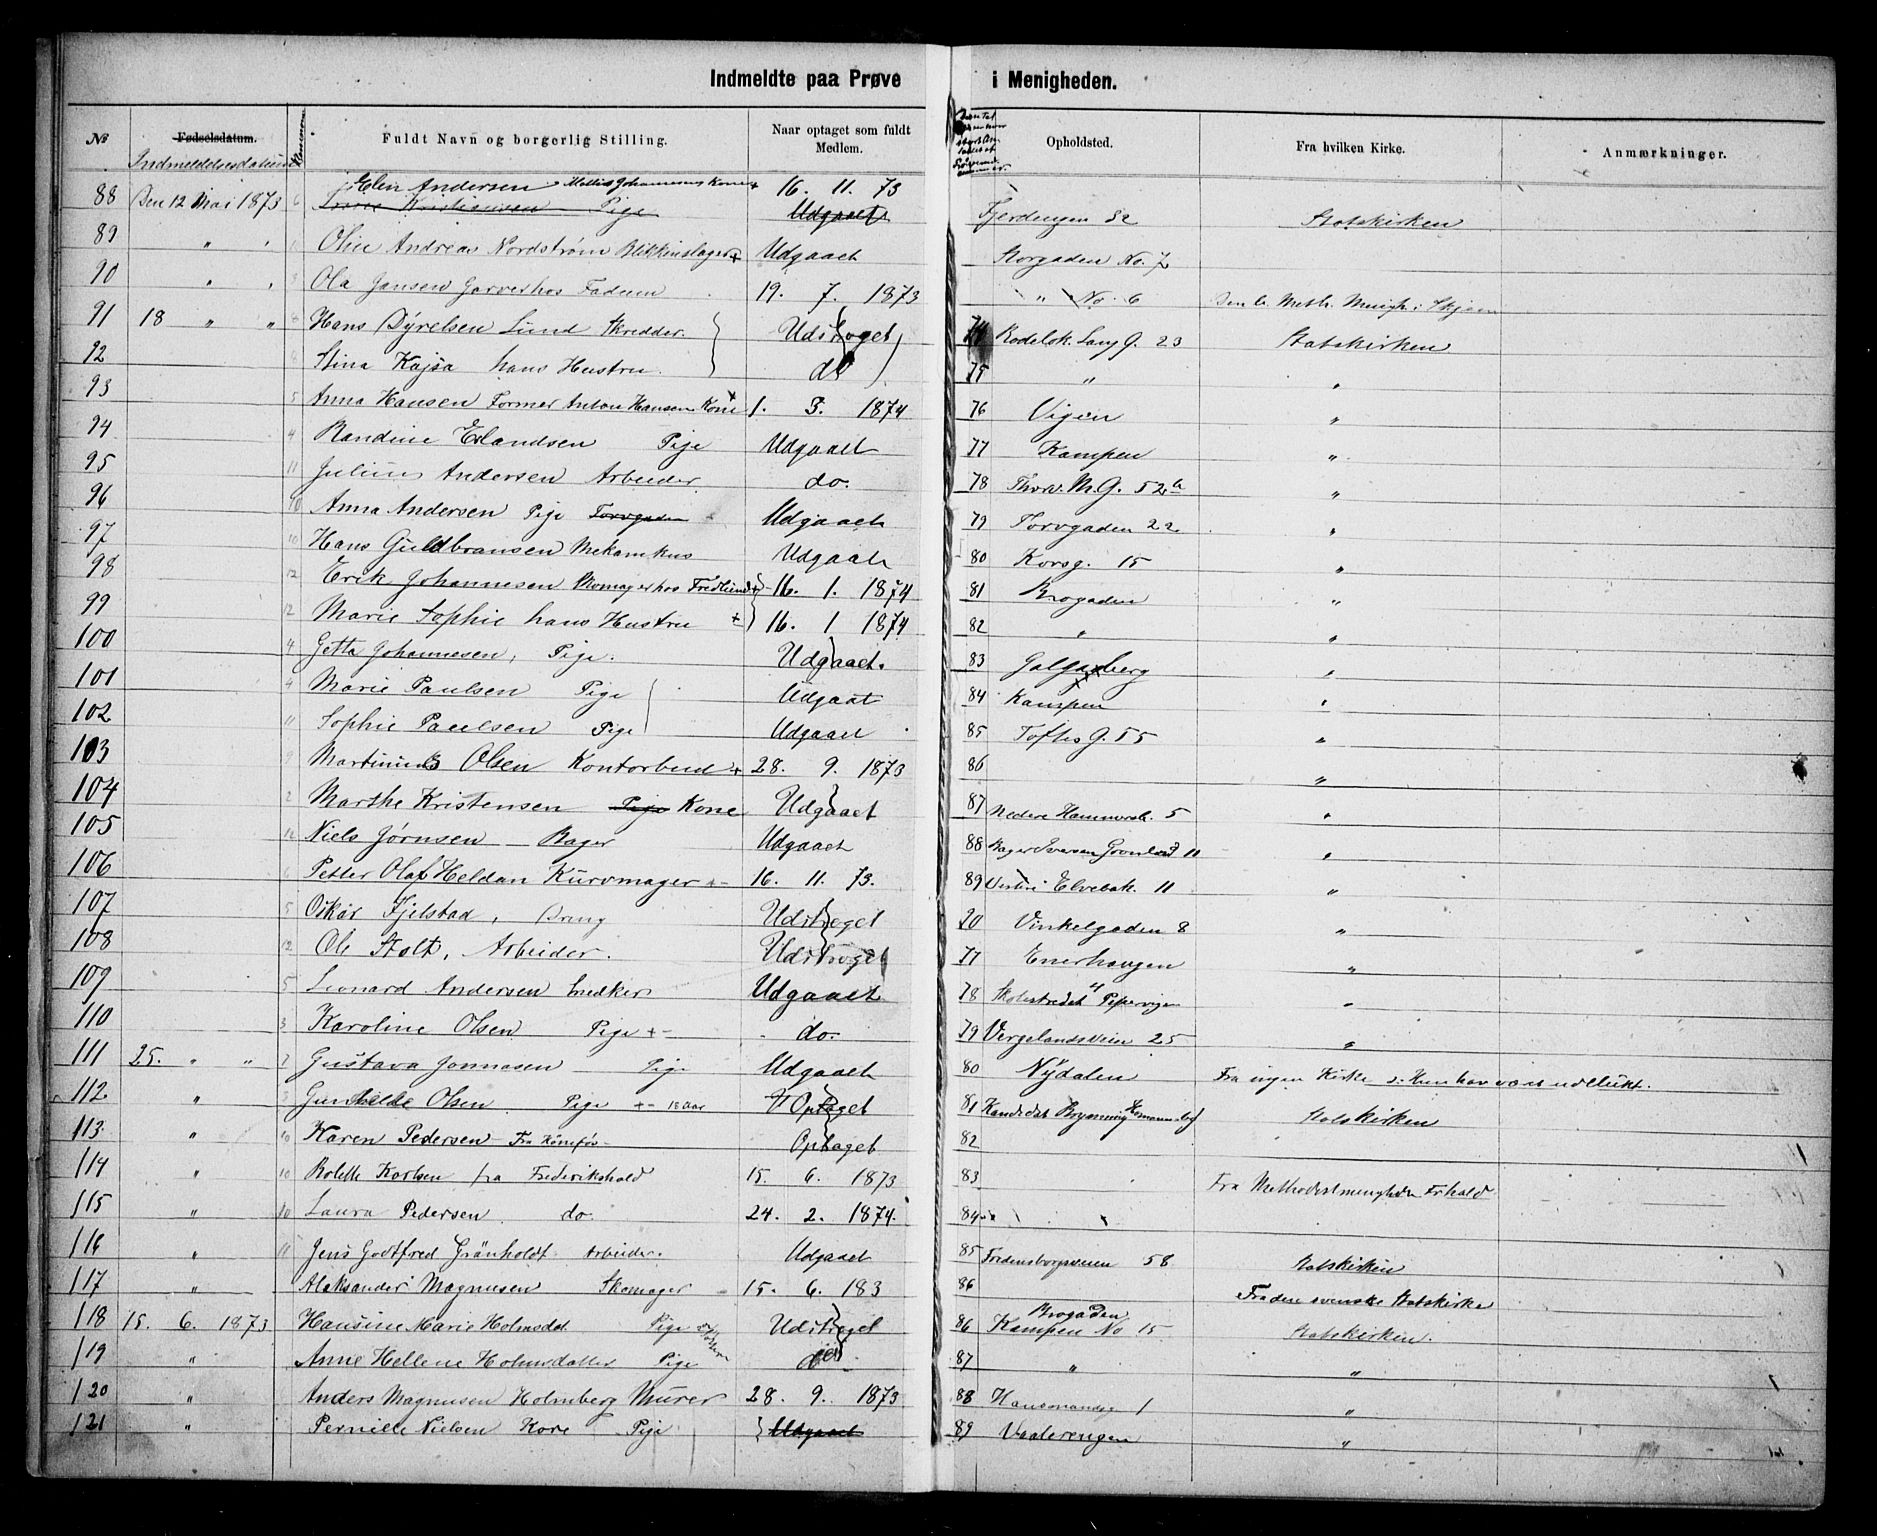 Indmeldte paa Prøve i Menigheden.
№ Fødselsdatum. Fuldt Navn og borgerlig Stilling. Naar optaget som fuldt Medlem. Opholdsted. Fra hvilken Kirke. Anmærkninger.
Indmeldelsesdatum
Elen Andersen 16. 11. 73
88 Den 12 Mai 1873 6 Kristiansen Pige Udgaaet Fjerdingen 32 Statskirken
89 " Olin Andreas Nordstrøm Blikkenslager + Udgaaet Storgaden No. 7
90 " Ola Jansen Garver hos Fadum 19. 7. 1873 " No. 6 Den b. Meth. Menigh. i Skjeen
91 18 " " Hans Dyrelsen Lund Skredder. Udstrøget 74 Rodelok. Lang G. 23 Statskirken
92 Stina Kajsa hans Hustru. do 75 " "
93 5 Anna Hansen Former Anton Hansen Kone 1. 3. 1874 76 Vigen "
94 4 Randine Erlandsen Pige Udgaaet 77 Kampen "
95 11 Julius Andersen Arbeider do. 78 Thorv. M. G. 52 a "
96 10 Anna Andersen Pige Torvgaden Udgaaet 79 Torvgaden 22 "
97 10 Hans Guldbransen Mekanikus Udgaaet 80 Korsg. 15 "
98 12 Erik Johannesen Skomager hos Fredlund + 16. 1. 1874 81 Brogaden "
99 12 Marie Sophie hans Hustru + 16. 1 1874 82 " "
100 4 Getta Johannesen, Pige. Udgaaet. 83 Galgeberg "
101 4 Marie Paulsen Pige Udgaat 84 Kampen "
102 11 Sophie Paulsen Pige Udgaaet 85 Toftes G. 55 "
103 9 Martinius Olsen Kontorbud + 28. 9. 1873 86 "
104 2 Marthe Kristensen Pige Kone Udgaaet 87 Nedere Hammersb. 5 "
105 12 Niels Jørnsen Bager Udgaaet 88 Bager Iversen Grønland 11 "
106 6 Petter Olaf Heldan Kurvmager + 16. 11. 73. 89 Vestre Elvebak. 11 "
107 5 Oskar Fjelstad, Dreng Udstrøget 70 Vinkelgaden 8 "
108 12 Ole Stolt, Arbeider. Udstrøget 77 Enerhaugen "
109 5 Leonard Andersen Snedker Udgaaet 78 Skolestrædet 4 Pipervigen "
110 3 Karoline Olsen Pige + do. 79 Vergelandsveien 25 "
111 25. " " 7 Gustava Jonnasen Pige Udgaaet 80 Nydalen Fra ingen Kirke d. Hun har været udelukt.
112 " 3 Gunhilde Olsen. Pige + 18 Aar Optaget 81 Kandidat Statskirken
113 " 10 Karen Pedersen Fra Hönefos Optaget 82
114 " 10 Bolette Karlsen fra Frederikshald 15. 6. 1873 83 Fra Methodistmenigheden Frhald
115 " 10 Laura Pedersen do. 24. 2. 1874. 84 "
116 " 11 Jens Godtfred Grönholdt Arbeider. Udgaaet 85 Fredensborgveien 58 Statskirken
117 " Aleksander Magnusen Skomager 15. 6. 183 86 Fra den svenske Statskirke
Brogaden
118 15. 6. 1873 Hansine Marie Holmsdat Pige Udstrøget 86 Kampen No 15 Statskirken.
119 " Anne Hellene Holmsdatter Pige do 87 " "
120 " Anders Magnusen Holmberg Murer 28. 9. 1873 88 1 "
121 " Pernille Nielsen Kore Pige Udgaaet 89 Vaalerengen "